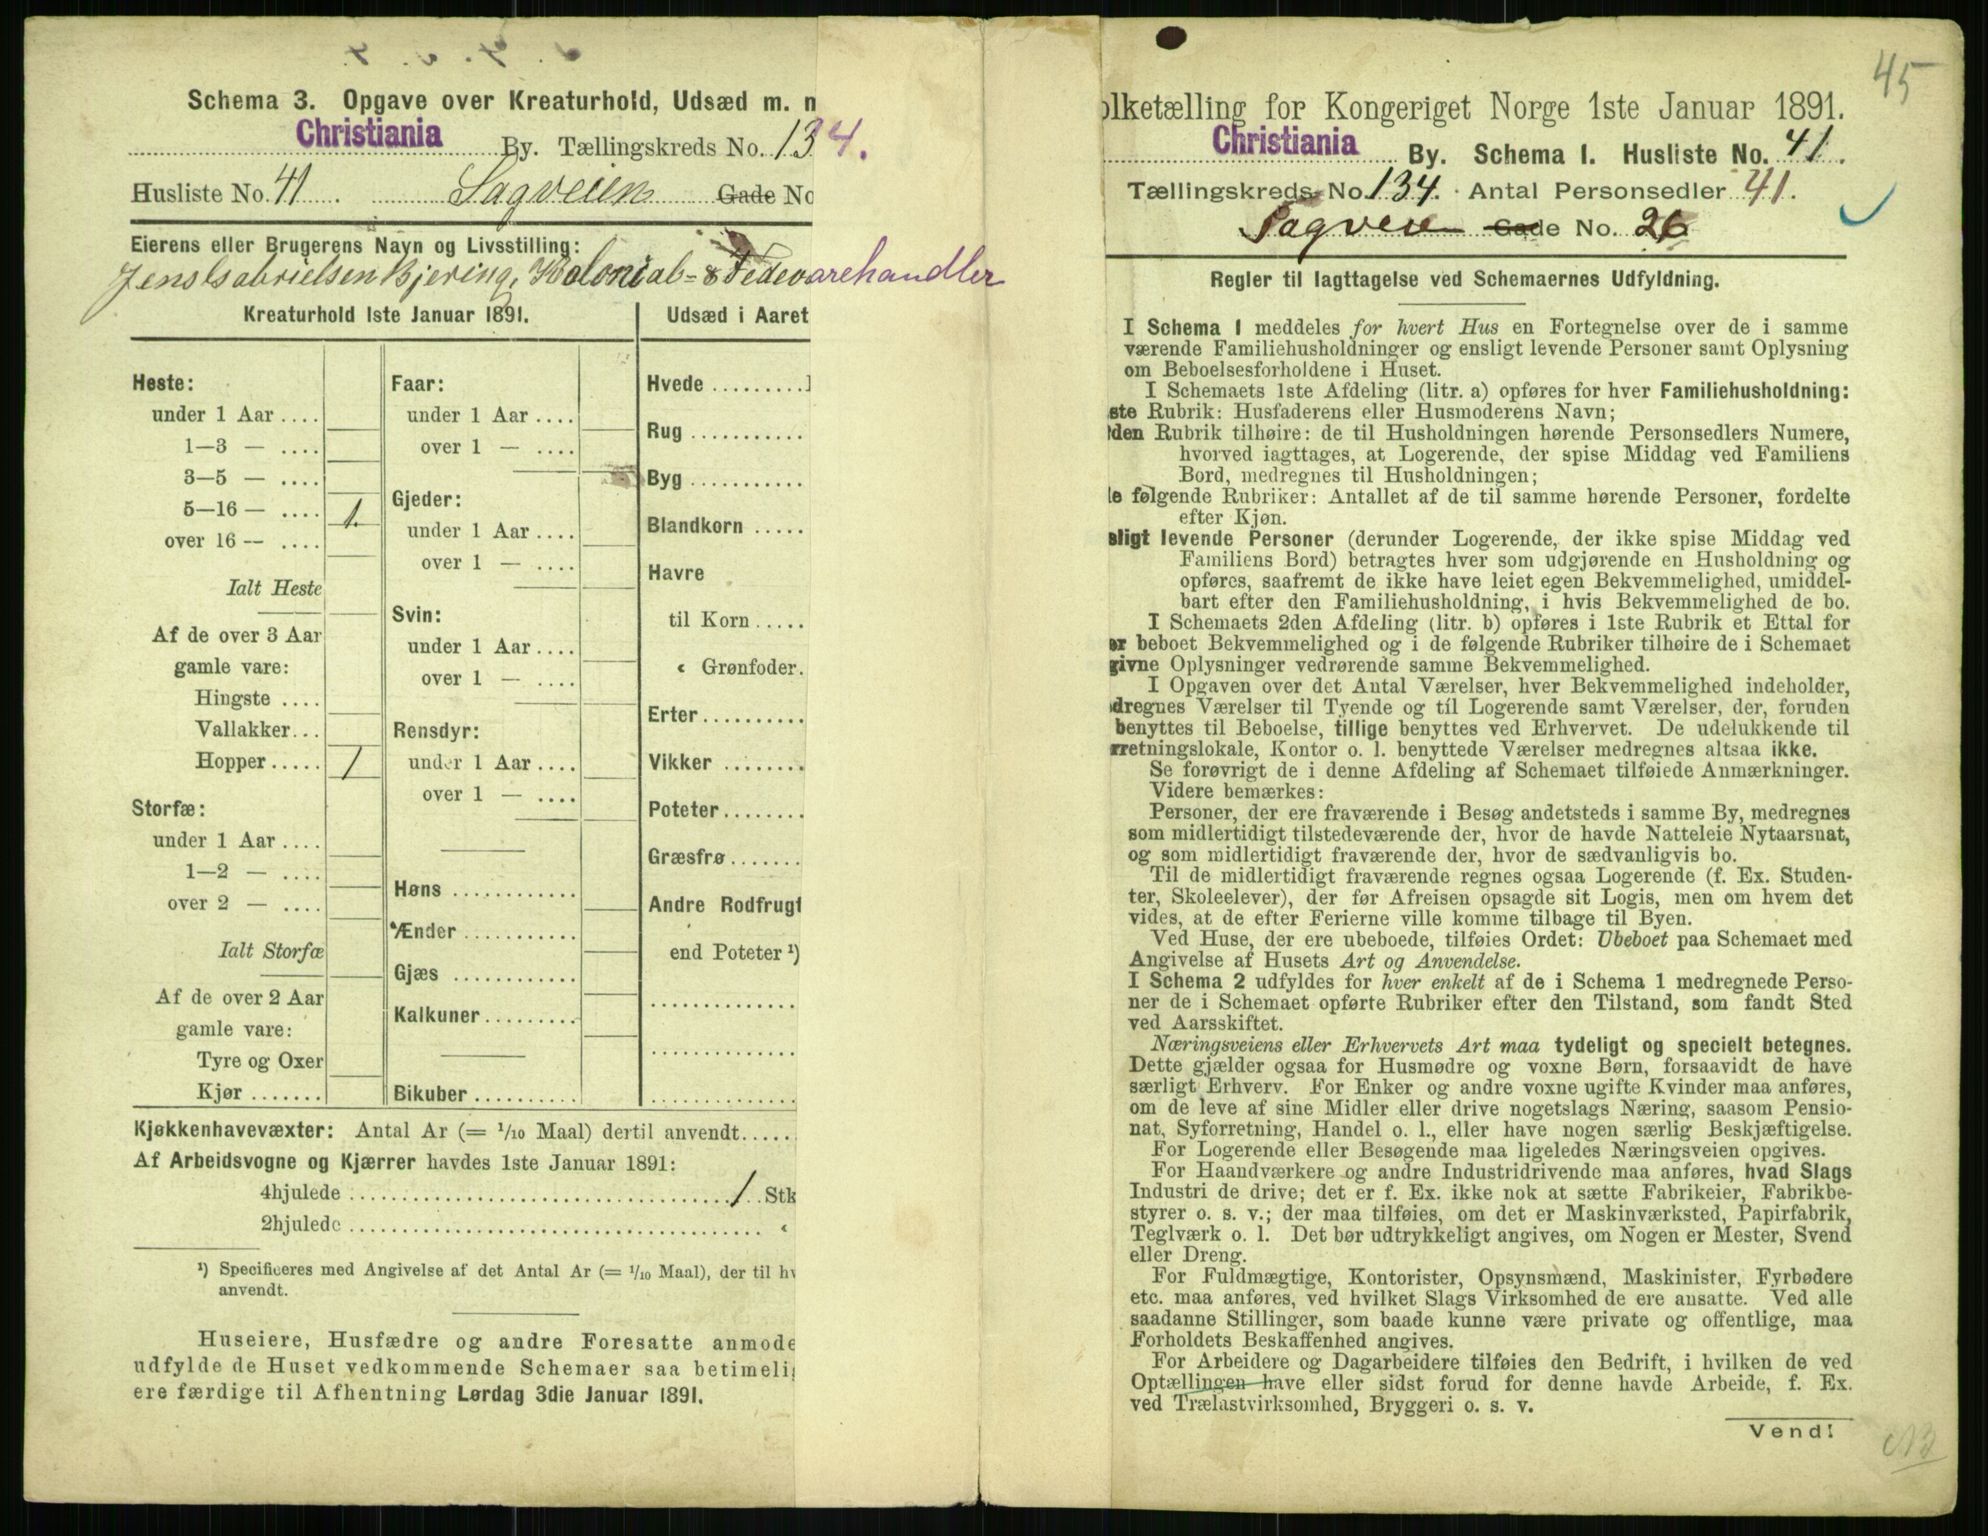 Schema 3. Opgave over Kreaturhold, Udsæd m. n
Christiania By. Tællingskreds No. 134.
Husliste No. 41. Sagveien Gade No
Eierens eller Brugerens Navn og Livsstilling:
Jens Gabrielsen Bjering, Kolonial- & Fedevarehandler
Kreaturhold 1ste Januar 1891.
Udsæd i Aaret
Heste:
under 1 Aar ....
1—3 — ....
3—5 — ....
5—16 — .... 1.
over 16 — ....
Ialt Heste
Af de over 3 Aar
gamle vare:
Hingste ....
Vallakker...
Hopper..... 1
Storfæ:
under 1 Aar ....
1—2 — ....
over 2 — ....
Ialt Storfæ
Af de over 2 Aar
gamle vare:
Tyre og Oxer
Kjør .......
Faar:
under 1 Aar ....
over 1 — ....
Gjeder:
under 1 Aar ....
over 1 — ....
Svin:
under 1 Aar ....
over 1 — ....
Rensdyr:
under 1 Aar ....
over 1 — ....
Høns ............
Ænder ...........
Gjæs ............
Kalkuner.........
Bikuber ..........
Hvede .........
Rug ...........
Byg ...........
Blandkorn .....
Havre
til Korn .....
« Grønfoder.
Erter..........
Vikker ........
Poteter........
Græsfrø.......
Andre Rodfrugt
end Poteter ¹)
Kjøkkenhavevæxter: Antal Ar (= 1/10 Maal) dertil anvendt.....
Af Arbeidsvogne og Kjærrer havdes 1ste Januar 1891:
4hjulede ........ 1 Stk
2hjulede ........ «
¹) Specificeres med Angivelse af det Antal Ar (= 1/10 Maal), der til hv
anvendt.
Huseiere, Husfædre og andre Foresatte anmode
udfylde de Huset vedkommende Schemaer saa betimelig
ere færdige til Afhentning Lørdag 3die Januar 1891.
45
olketælling for Kongeriget Norge 1ste Januar 1891.
Christiania By. Schema 1. Husliste No. 41.
Tællingskreds No. 134. Antal Personsedler 41.
Sagveien Gade No. 26
Regler til Iagttagelse ved Schemaernes Udfyldning.
I Schema 1 meddeles for hvert Hus en Fortegnelse over de i samme
værende Familiehusholdninger og ensligt levende Personer samt Oplysning
om Beboelsesforholdene i Huset.
I Schemaets 1ste Afdeling (litr. a) opføres for hver Familiehusholdning:
ste Rubrik: Husfaderens eller Husmoderens Navn;
den Rubrik tilhøire: de til Husholdningen hørende Personsedlers Numere,
hvorved iagttages, at Logerende, der spise Middag ved Familiens
Bord, medregnes til Husholdningen;
e følgende Rubriker: Antallet af de til samme hørende Personer, fordelte
efter Kjøn.
sligt levende Personer (derunder Logerende, der ikke spise Middag ved
Familiens Bord) betragtes hver som udgjørende en Husholdning og
opføres, saafremt de ikke have leiet egen Bekvemmelighed, umiddel-
bart efter den Familiehusholdning, i hvis Bekvemmelighed de bo.
I Schemaets 2den Afdeling (litr. b) opføres i 1ste Rubrik et Ettal for
er beboet Bekvemmelighed og i de følgende Rubriker tilhøire de i Schemaet
givne Oplysninger vedrørende samme Bekvemmelighed.
I Opgaven over det Antal Værelser, hver Bekvemmelighed indeholder,
dregnes Værelser til Tyende og til Logerende samt Værelser, der, foruden
benyttes til Beboelse, tillige benyttes ved Erhvervet. De udelukkende til
rretningslokale, Kontor o. l. benyttede Værelser medregnes altsaa ikke.
Se forøvrigt de i denne Afdeling af Schemaet tilføiede Anmærkninger.
Videre bemærkes:
Personer, der ere fraværende i Besøg andetsteds i samme By, medregnes
som midlertidigt tilstedeværende der, hvor de havde Natteleie Nytaarsnat,
og som midlertidigt fraværende der, hvor de sædvanligvis bo.
Til de midlertidigt fraværende regnes ogsaa Logerende (f. Ex. Studen-
ter, Skoleelever), der før Afreisen opsagde sit Logis, men om hvem det
vides, at de efter Ferierne ville komme tilbage til Byen.
Ved Huse, der ere ubeboede, tilføies Ordet: Ubeboet paa Schemaet med
Angivelse af Husets Art og Anvendelse.
I Schema 2 udfyldes for hver enkelt af de i Schema 1 medregnede Perso-
ner de i Schemaet opførte Rubriker efter den Tilstand, som fandt Sted
ved Aarsskiftet.
Næringsveiens eller Erhvervets Art maa tydeligt og specielt betegnes.
Dette gjælder ogsaa for Husmødre og voxne Børn, forsaavidt de have
særligt Erhverv. For Enker og andre voxne ugifte Kvinder maa anføres,
om de leve af sine Midler eller drive nogetslags Næring, saasom Pensio-
nat, Syforretning, Handel o. l., eller have nogen særlig Beskjæftigelse.
For Logerende eller Besøgende maa ligeledes Næringsveien opgives.
For Haandværkere og andre Industridrivende maa anføres, hvad Slags
Industri de drive; det er f. Ex. ikke nok at sætte Fabrikeier, Fabrikbe-
styrer o. s. v.; der maa tilføies, om det er Maskinværksted, Papirfabrik,
Teglværk o. l. Det bør udtrykkeligt angives, om Nogen er Mester, Svend
eller Dreng.
For Fuldmægtige, Kontorister, Opsynsmænd, Maskinister, Fyrbødere
etc. maa anføres, ved hvilket Slags Virksomhed de ere ansatte. Ved alle
saadanne Stillinger, som baade kunne være private og offentlige, maa
Forholdets Beskaffenhed angives.
For Arbeidere og Dagarbeidere tilføies den Bedrift, i hvilken de ved
Optællingen have eller sidst forud for denne havde Arbeide, f. Ex.
ved Trælastvirksomhed, Bryggeri o. s. v.
Vend!